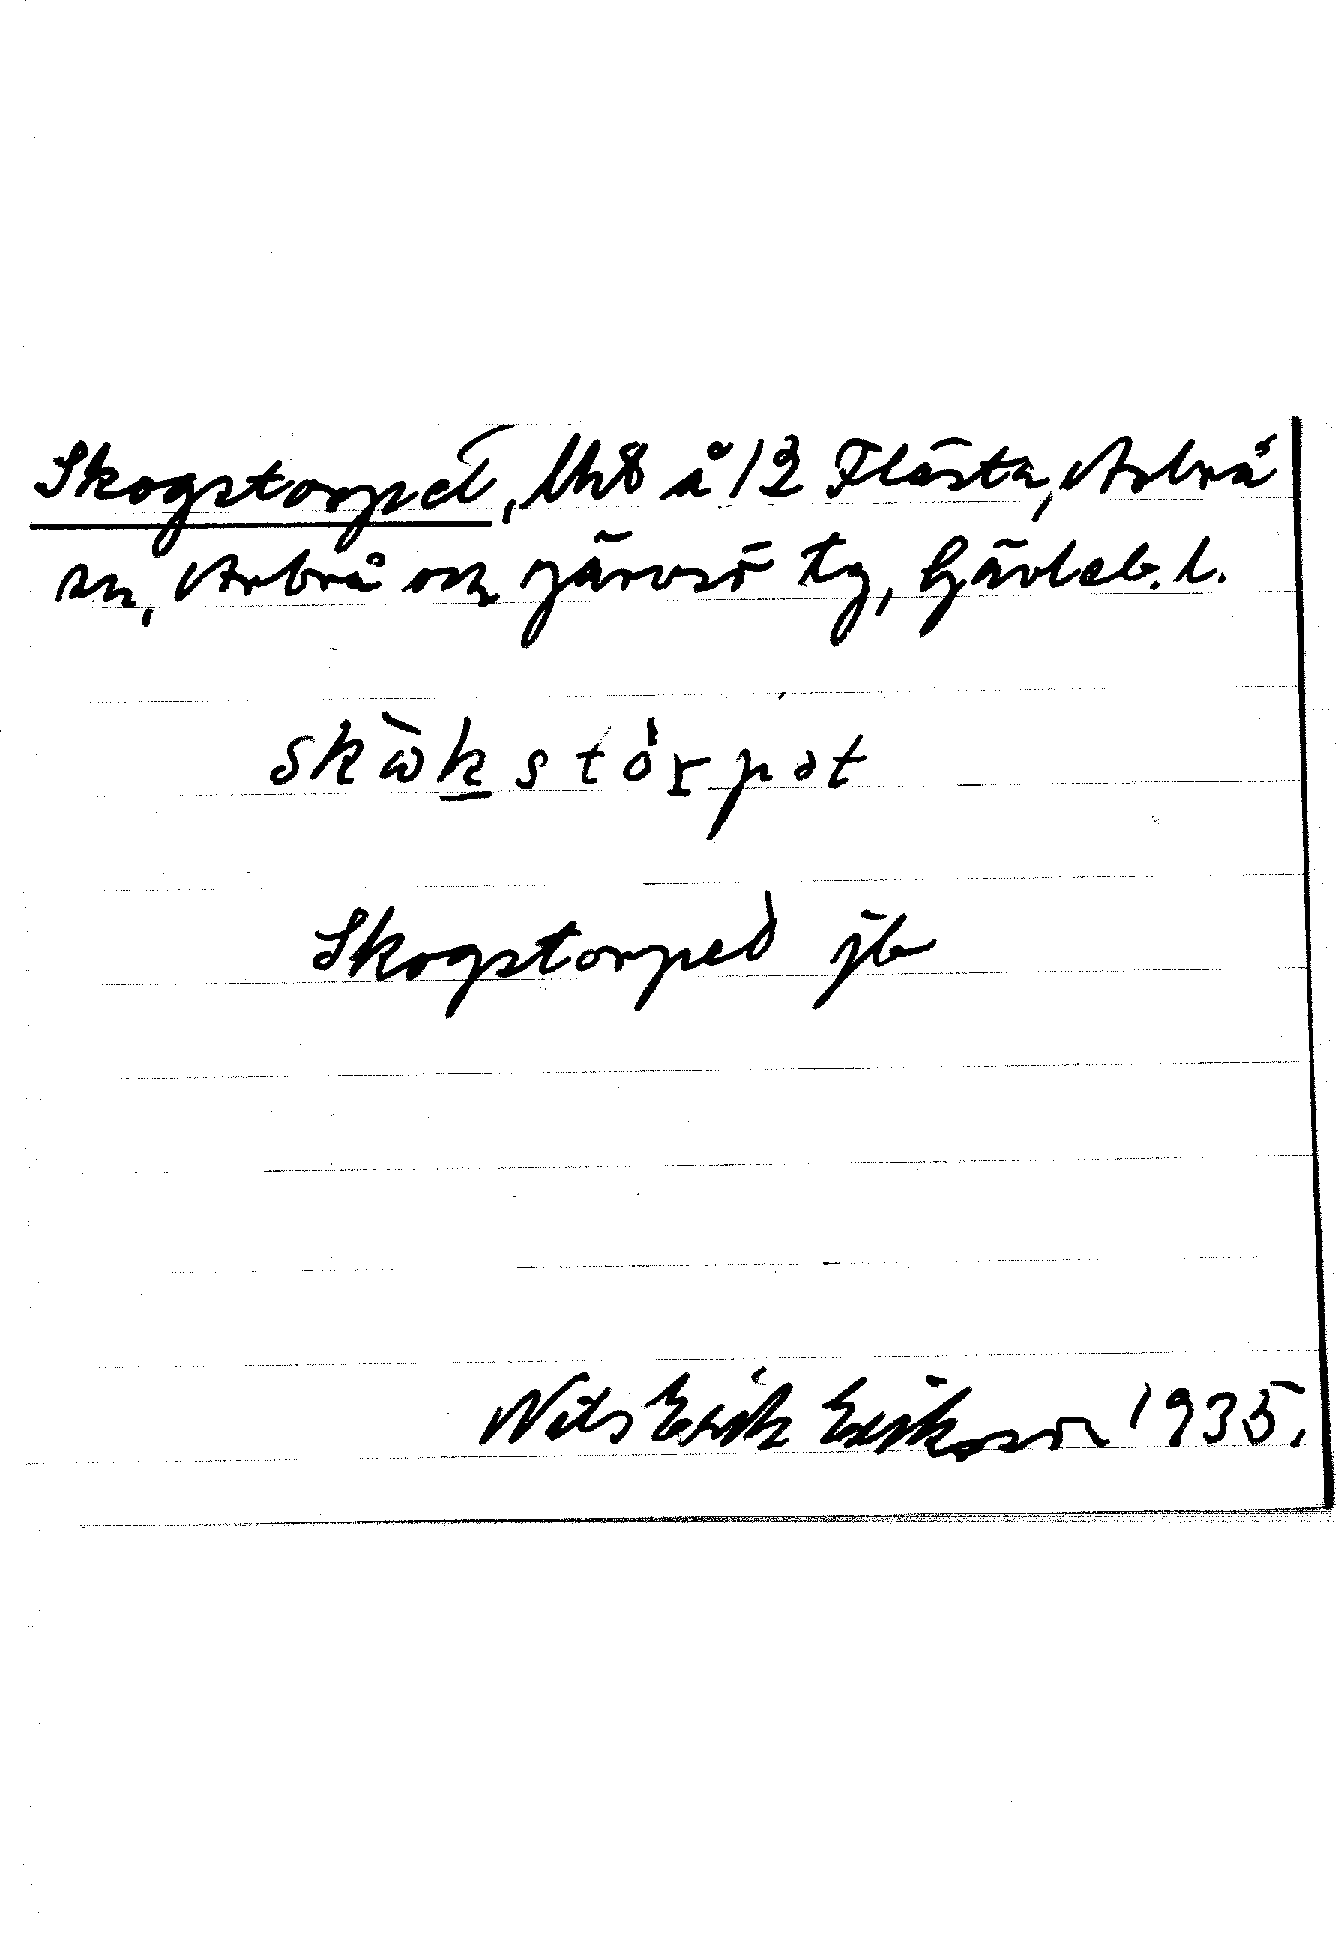 Skogstorpet, lht å 12 Flästa, Arbrå
sn, Arbrå och Järvsö tg, Gävleb. l.
skὼk störpət
Skogstorped jb
Nils Erik Erikson 1935.